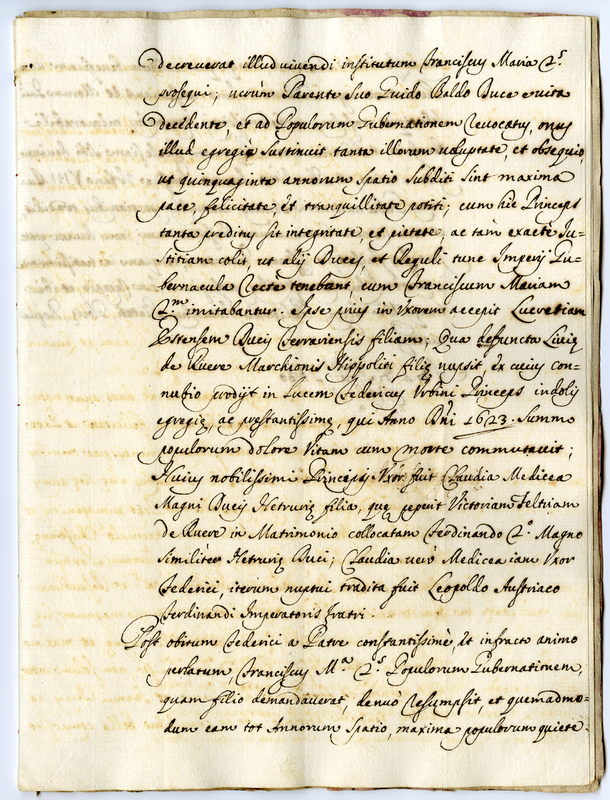 decreverat illud vivendi institutum Franciscus Maria 2.s
prosequi; verùm Parente Suo Guido Baldo Duce e vita
decedente, et ad Populorum Gubernationem revocatus, onus
illud egregiè sustinuit tanta illorum voluptate, et obsequio
ut quinquaginta annorum spatio Subditi sint maxima
pace, felicitate, et tranquillitate potiti; cum hic Princeps
tanta preditus sit integritate, et pietate, ac tàm exactè Ju=
stitiam colit, ut alij Duces, et Reguli tunc Imperij Gu=
bernacula Rectè tenebant, cum Franciscum Mariam
2.m imitabantur. Ipse prius in Vxorem accepit Lucretiam
Estensem Ducis Ferrariensis filiam; Qua defuncta Liviæ
de Ruere Marchionis Hippoliti filiæ nupsit, ex cuius con=
nubio prodijt in Lucem Federicus Vrbini Princeps indolis
egregiæ, ac prestantissimæ, qui Anno Dni 1623. Summo
populorum dolore Vitam cum morte commutavit;
Huius nobilissimi Principis Vxor fuit Claudia Medicea
Magni Ducis Hetruriæ filia, quæ peperit Victoriam Feltriam
de Ruere in Matrimonio collocatam Ferdinando 2.o Magno
similiter Hetruriæ Duci; Claudia verò Medicea iam Vxor
Federici, iterum nuptui tradita fuit Leopoldo Austriaco
Ferdinandi Imperatoris fratri.
Post obitum Federici a Patre constantissimè, et infracto animo
perlatum, Franciscus M.a 2.s Populorum Gubernationem,
quam filio demandauerat, denuò resumpsit, et quemadmo=
dum eam tot Annorum Spatio, maxima populorum quiete